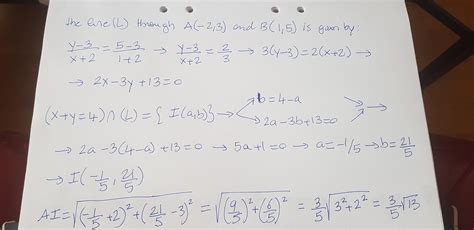 The line (L) through A(-2,3) and B(1,5) is given by:
(y-3)/(x+2) = (5-3)/(1+2) → (y-3)/(x+2) = 2/3 → 3(y-3)=2(x+2) →
→ 2x-3y+13=0
(x+y=4)∩(L)={ I(a,b)} → b=4-a →
→ 2a-3b+13=0
→ 2a-3(4-a)+13=0 → 5a+1=0 → a=-1/5 → b=21/5
→ I(-1/5, 21/5)
AI=√((-1/5+2)²+(21/5-3)²) = √((9/5)²+(6/5)²) = 3/5 √(3²+2²) = 3/5 √13